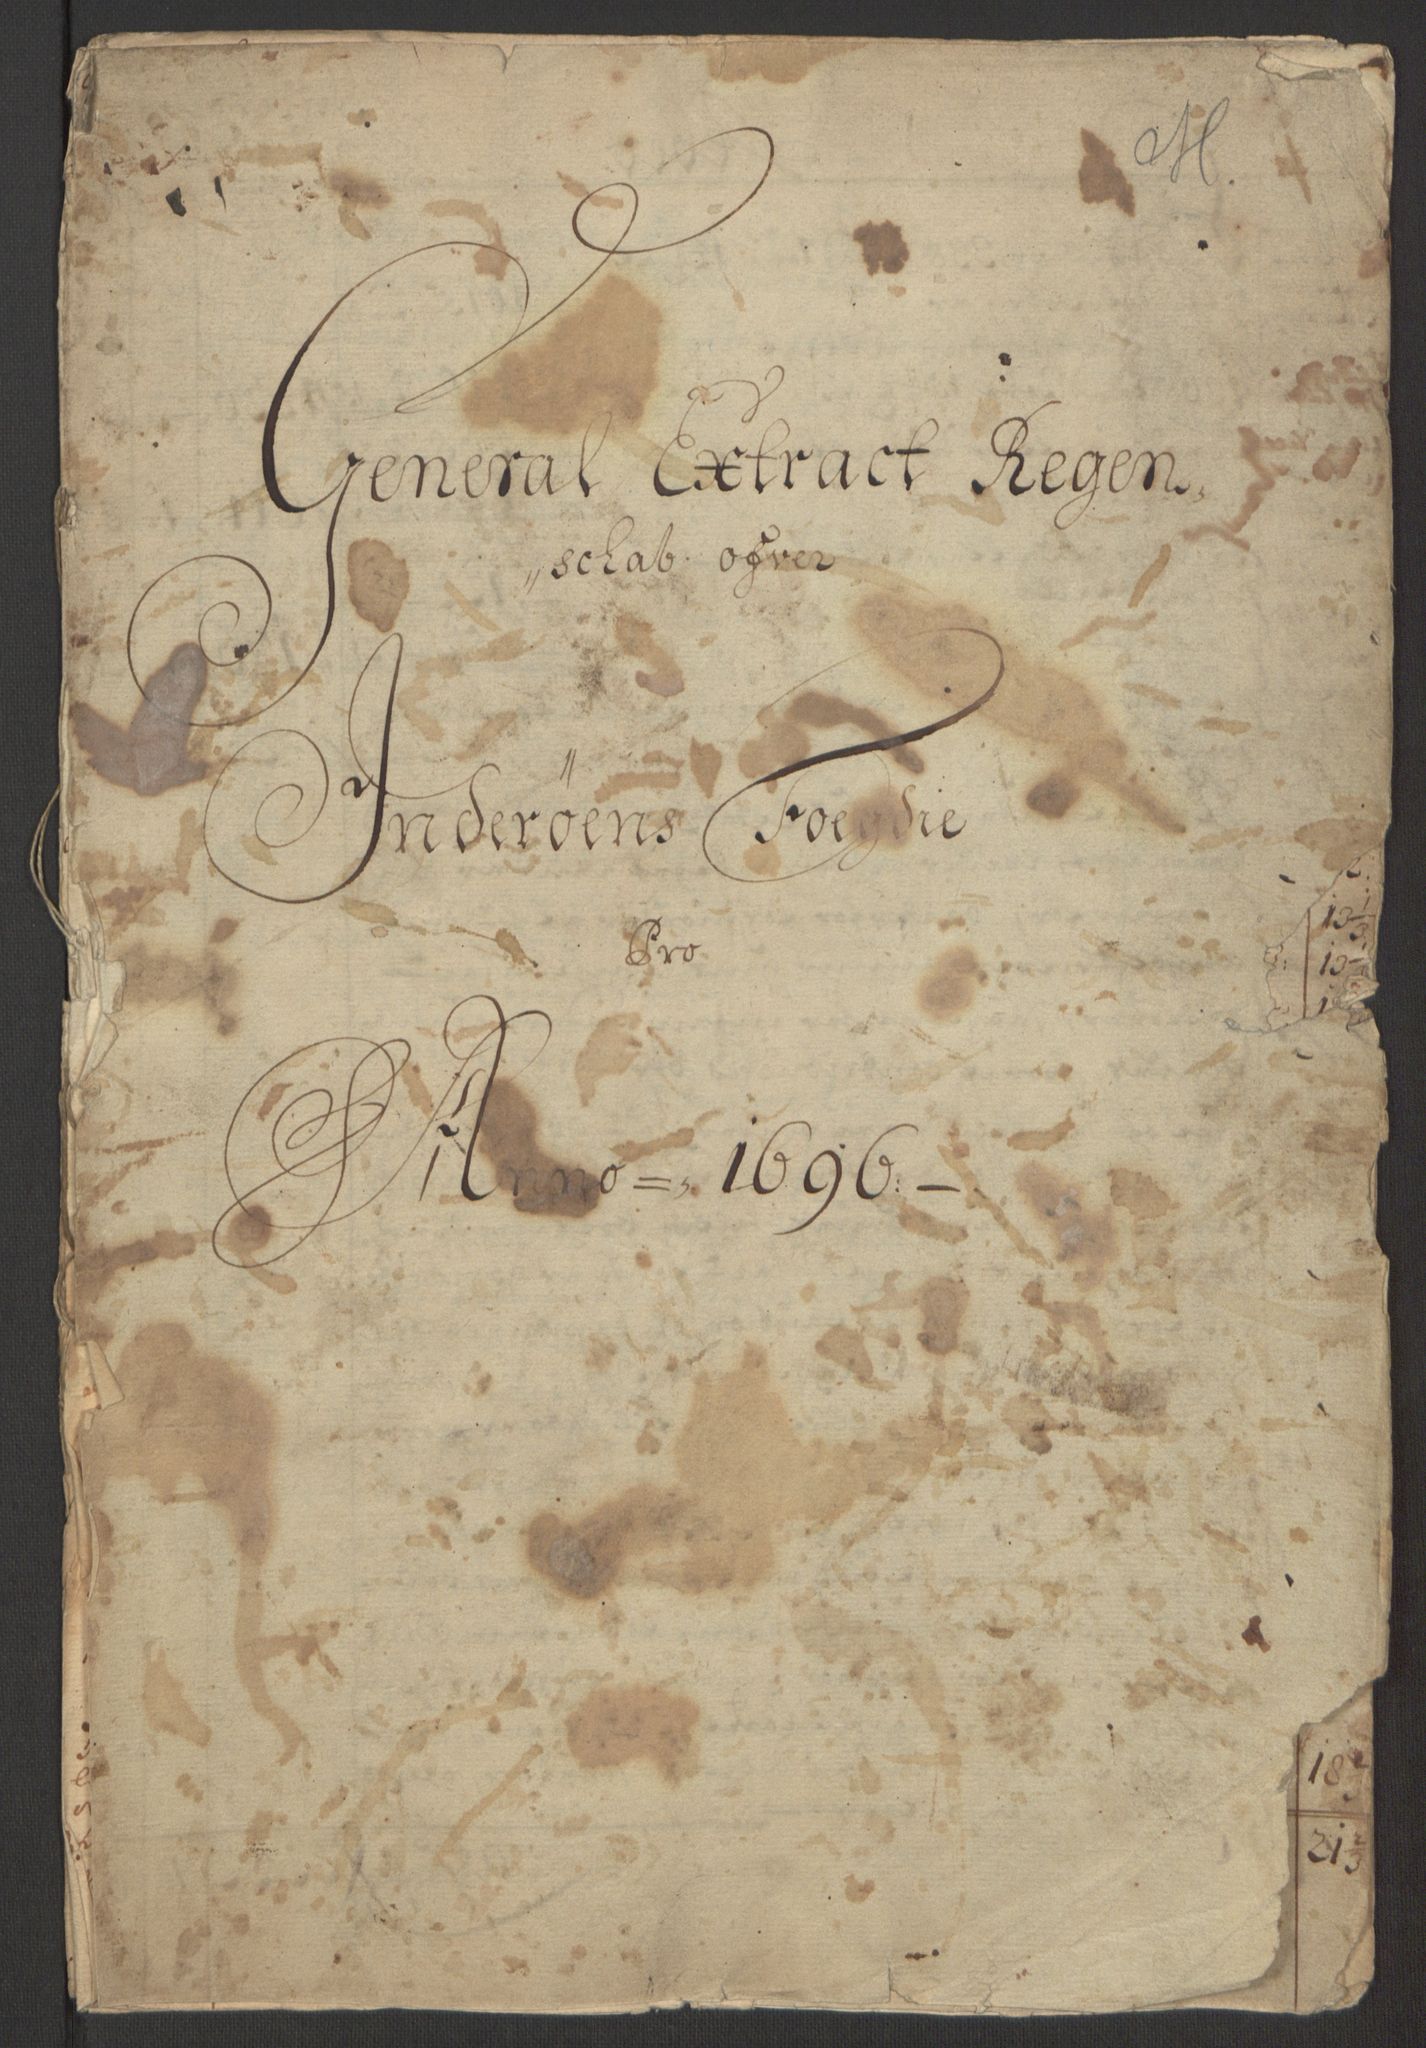 M.
General Extract Regen„
„schab ofver
Inderöens Foegdie
Pro
Anno =, 1696. –
13 1/3
13
18
21 1/3